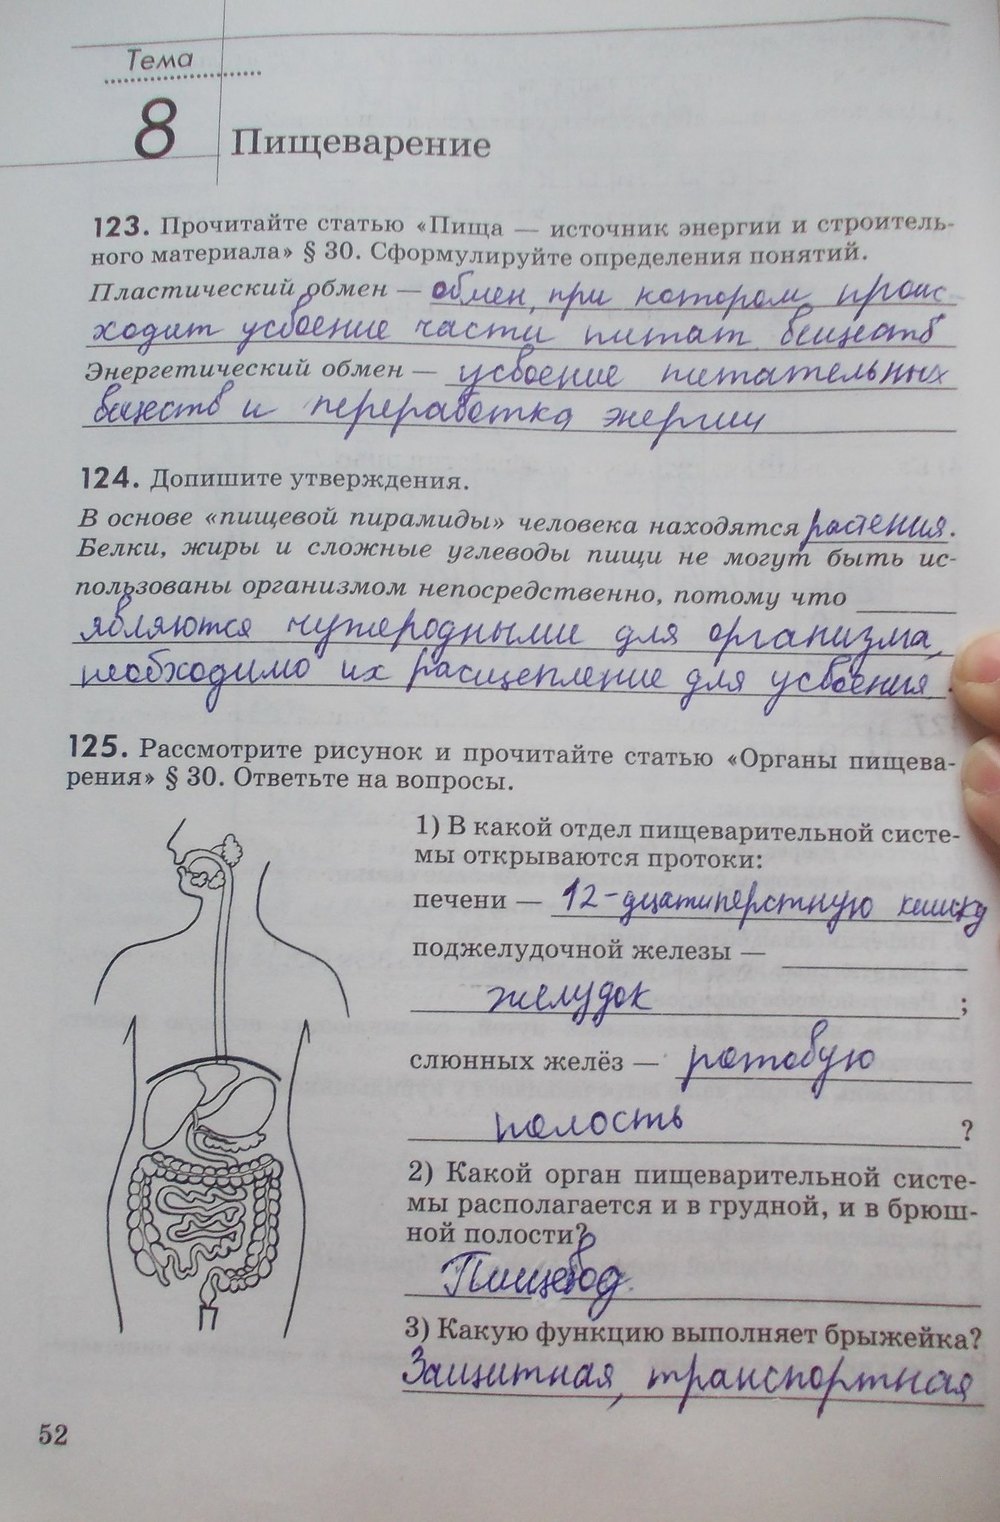 Тема
8 Пищеварение
123. Прочитайте статью «Пища — источник энергии и строитель-
ного материала» § 30. Сформулируйте определения понятий.
Пластический обмен — обмен, при котором проис
ходит усвоение части питат веществ
Энергетический обмен — усвоение питательных
веществ и переработка энергии
124. Допишите утверждения.
В основе «пищевой пирамиды» человека находятся растения.
Белки, жиры и сложные углеводы пищи не могут быть ис-
пользованы организмом непосредственно, потому что
являются чужеродными для организма,
необходимо их расщепление для усвоения.
125. Рассмотрите рисунок и прочитайте статью «Органы пищева-
рения» § 30. Ответьте на вопросы.
1) В какой отдел пищеварительной систе-
мы открываются протоки:
печени — 12-дцатиперстную кишку
поджелудочной железы —
желудок ;
слюнных желёз — ротовую
полость ?
2) Какой орган пищеварительной систе-
мы располагается и в грудной, и в брюш-
ной полости?
Пищевод.
3) Какую функцию выполняет брыжейка?
Защитная, транспортная
52